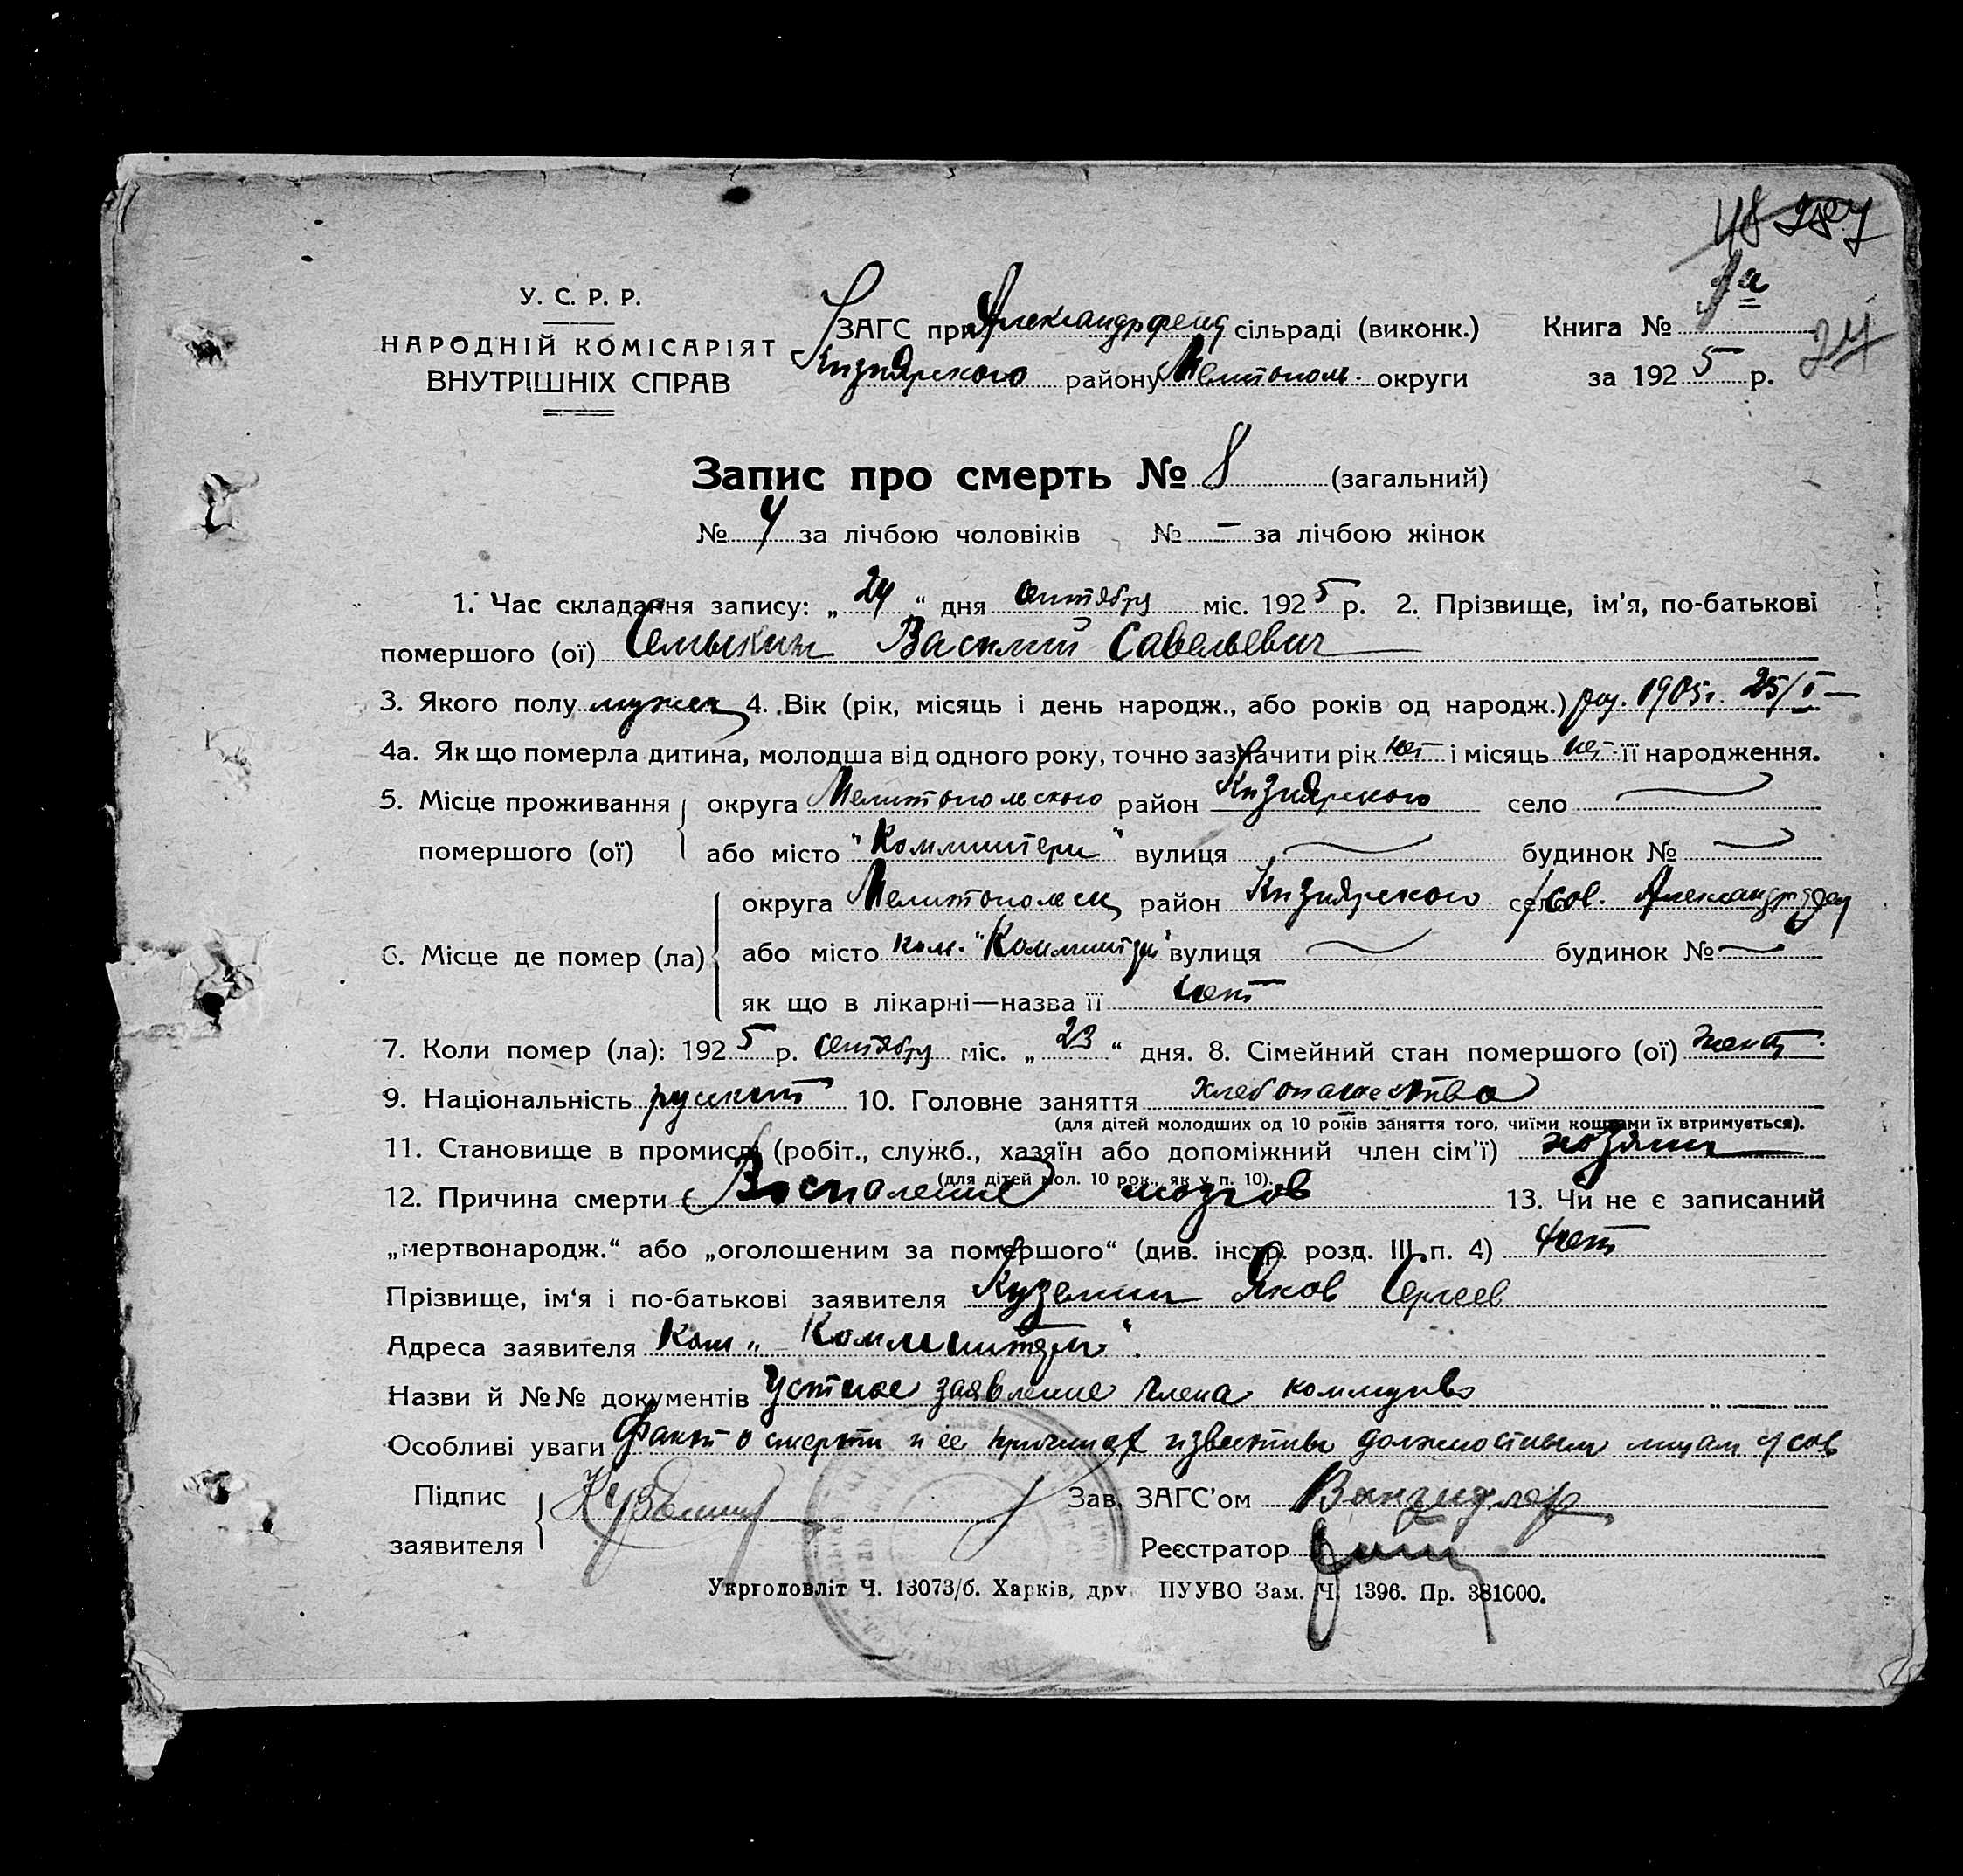 У. С. Р. Р.
НАРОДНІЙ КОМІСАРІЯТ
ВНУТРІШНІХ СПРАВ
ЗАГС при Александрфелд сільраді (виконк.)
Кизиярского району Мелитополь. округи
Книга № 1а
24
за 1925 р.
Запис про смерть № 8 (загальний)
№ 4 за лічбою чоловіків № – за лічбою жінок
1. Час складання запису: „24“ дня сентября міс. 1925 р. 2. Прізвище, ім'я, по-батькові
помершого (ої) Семыкин Василий Савельевич
3. Якого полу мужск 4. Вік (рік, місяць і день народж., або років од народж.) 1905г. 25/I –
4а. Як що померла дитина, молодша від одного року, точно зазначити рік нет і місяць нет її народження.
5. Місце проживання округа Мелитопольского район Кизиярского село
помершого (ої) або місто "Комминтерн" вулиця будинок №
округа Мелитопольск район Кизиярского село /сов. Александрфелд
6. Місце де помер (ла) або місто ком. "Комминтерн" вулиця будинок №
як що в лікарні—назва її нет
7. Коли помер (ла): 1925 р. сентября міс. „23“ дня. 8. Сімейний стан помершого (ої) женат
9. Національність русский 10. Головне заняття хлебопашество
(для дітей молодших од 10 років заняття того, чиїми коштами їх втримується).
11. Становище в промислі (робіт., служб., хазяїн або допоміжний член сім'ї) хозяин
(для дітей мол. 10 рок., як у п. 10).
12. Причина смерти Воспаление мозгов 13. Чи не є записаний
„мертвонародж.“ або „оголошеним за помершого“ (див. інстр. розд. III п. 4) нет
Прізвище, ім'я і по-батькові заявителя Куземин Яков Сергеев
Адреса заявителя Ком „Комминтерн".
Назви й №№ документів Устное заявление члена коммуны
Особливі уваги Факт о смерти и ее причинах известны должностным лицам с/сов
Підпис заявителя
Зав. ЗАГС'ом
Реєстратор
Укрголовліт Ч. 13073/б. Харків, дру. ПУУВО Зам. Ч. 1396. Пр. 381000.